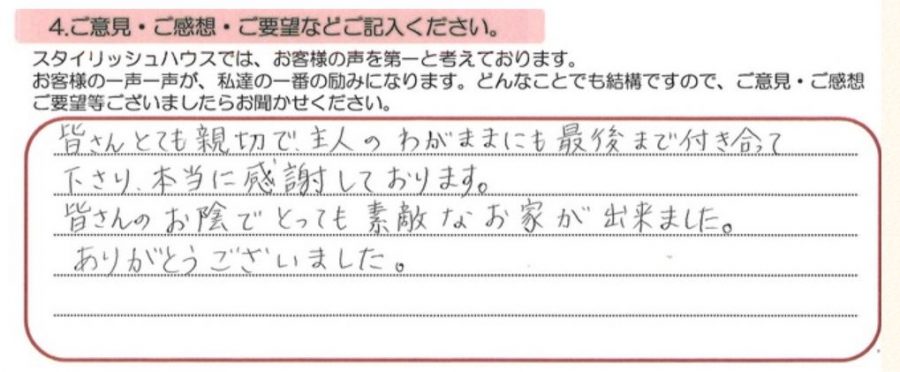 4.ご意見・ご感想・ご要望などご記入ください。
スタイリッシュハウスでは、お客様の声を第一と考えております。
お客様の一声一声が、私達の一番の励みになります。どんなことでも結構ですので、ご意見・ご感想
ご要望等ございましたらお聞かせください。
皆さんとても親切で、主人のわがままにも最後まで付き合って
下さり、本当に感謝しております。
皆さんのお陰でとっても素敵なお家が出来ました。
ありがとうございました。